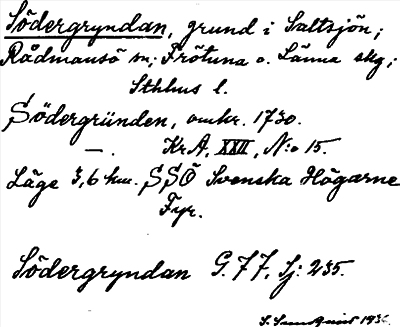 Södergryndan, grund i Saltsjön;
Rådmansö sn; Frötuna o. Länna skg;
Sthlms l.
Södergründen, omkr. 1730.
— . KrA, XXII, N:o 15.
Läge 3,6 km. SSÖ Svenska Högarne
Fyr.
Södergryndan G. 77, Sj: 235.